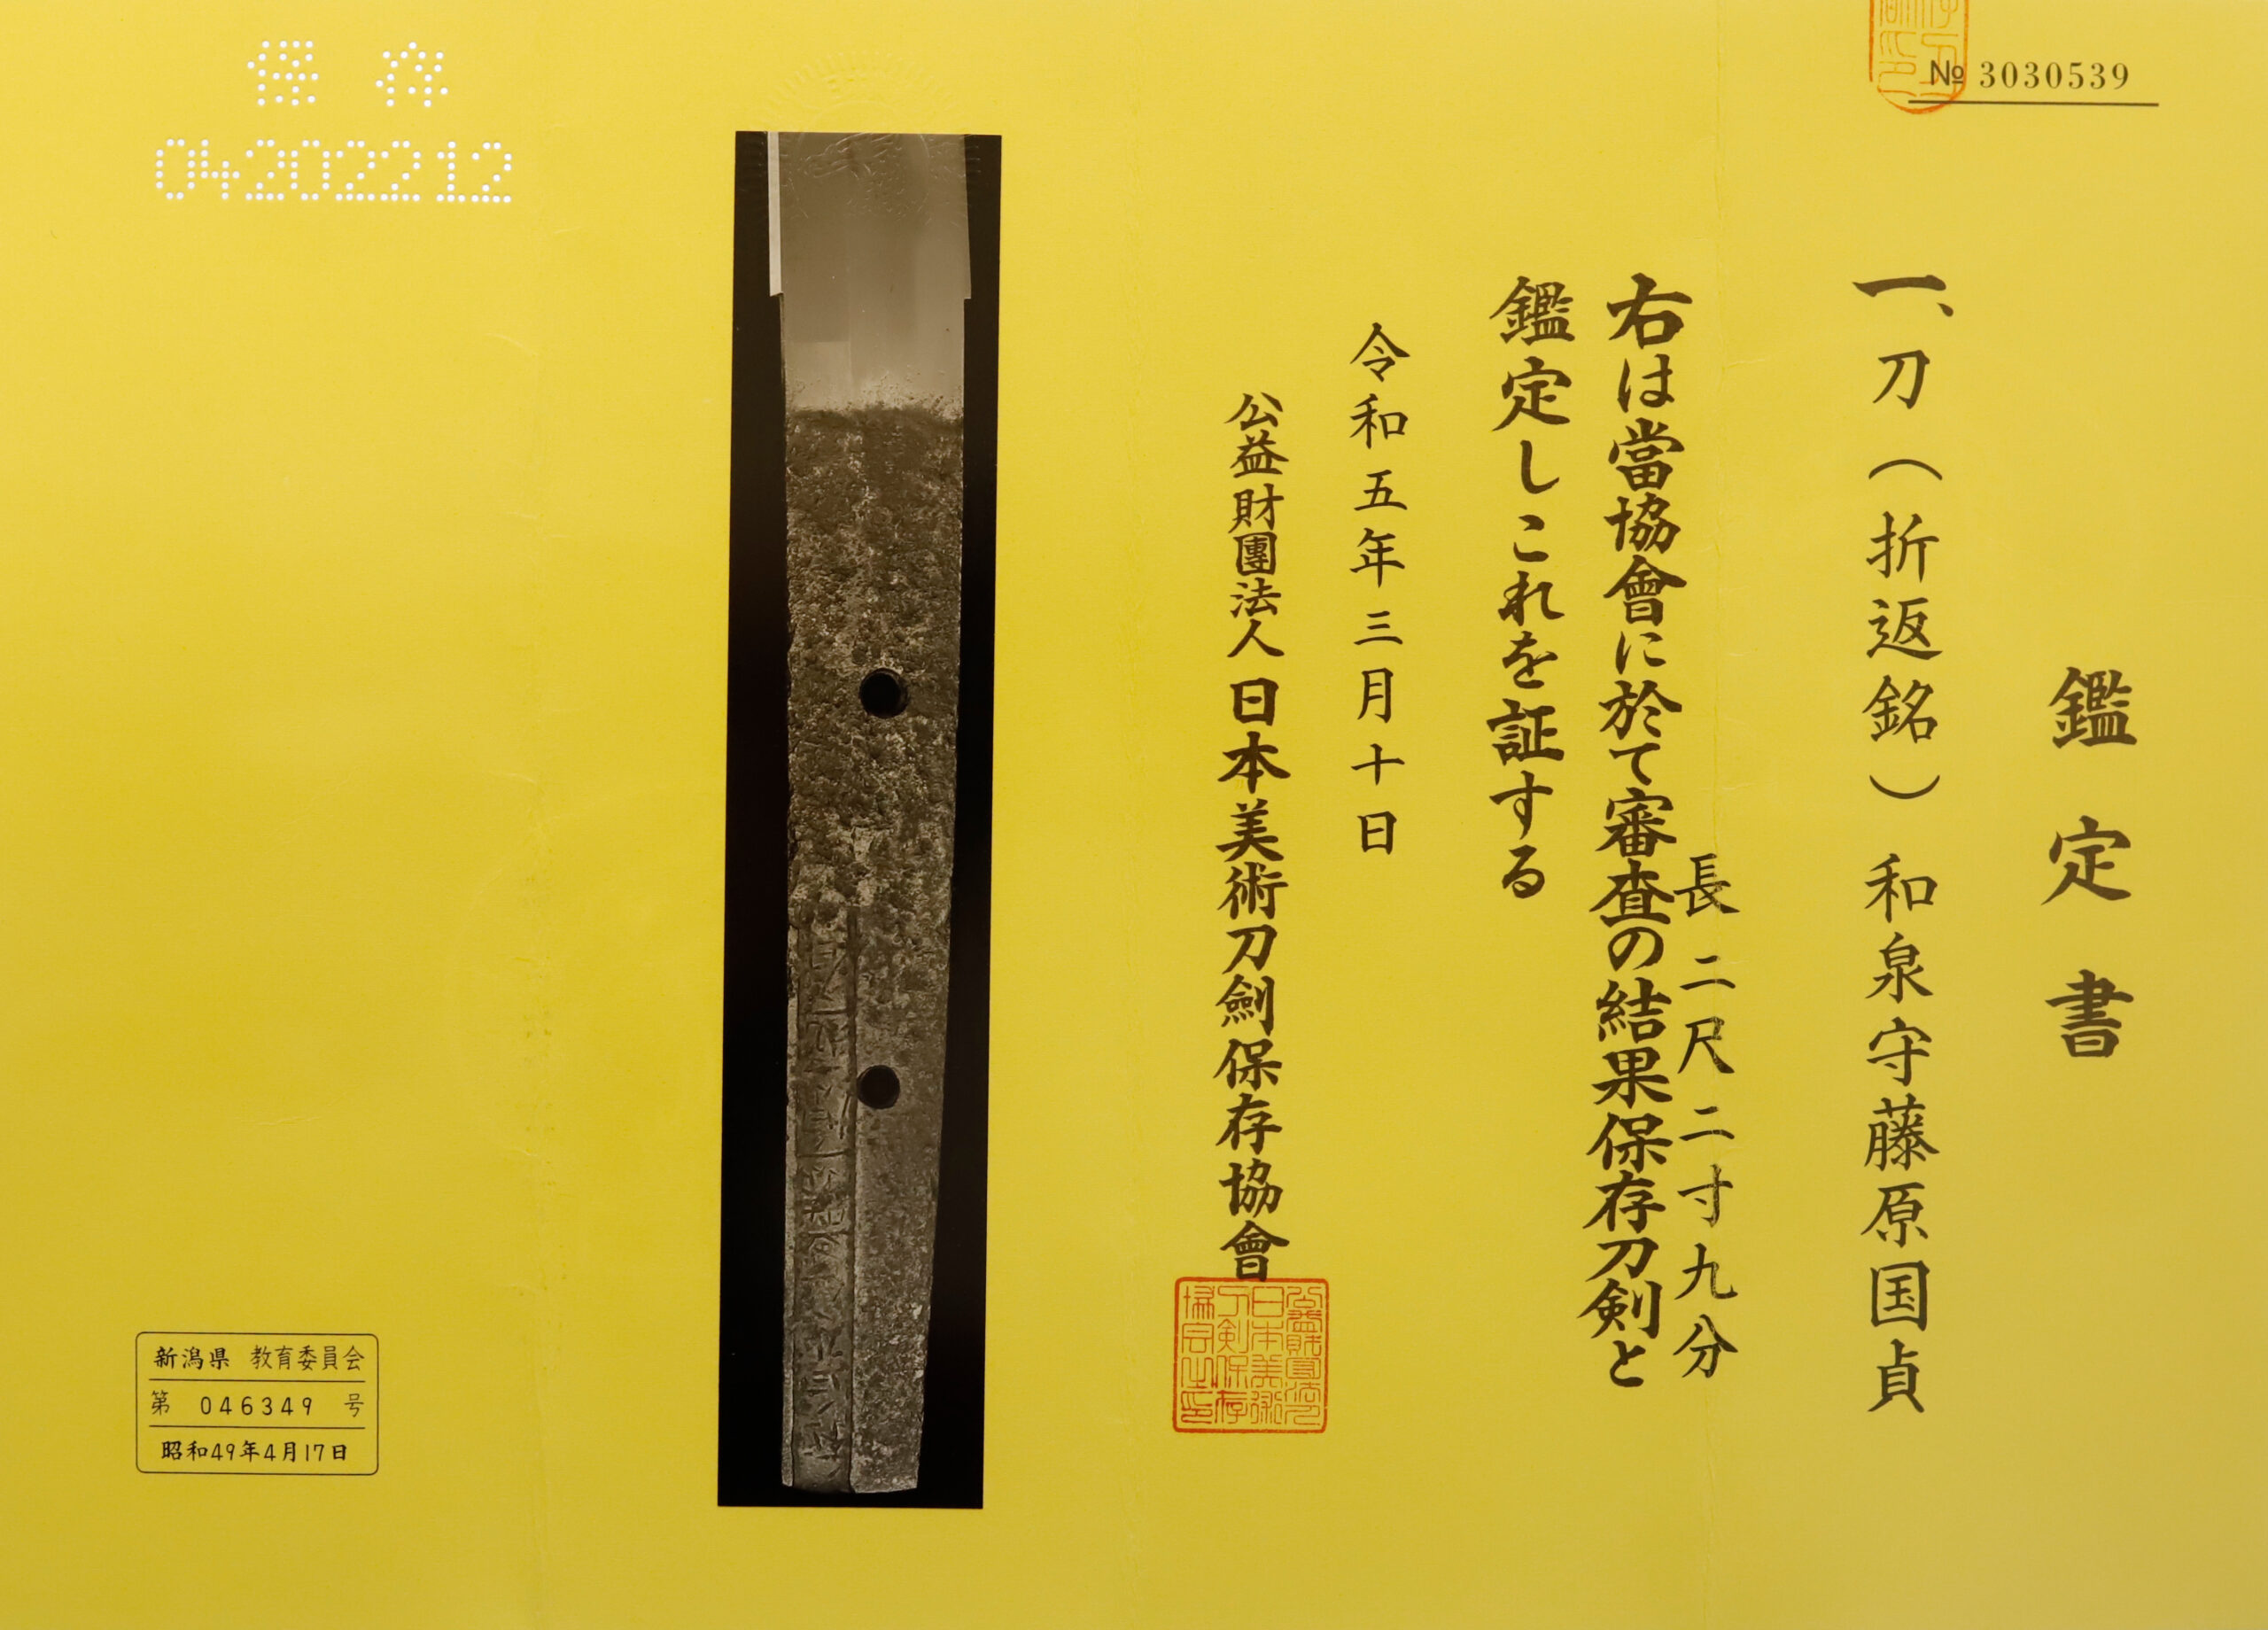 № 3030539
鑑定書
一、刀(折返銘)和泉守藤原国貞
長二尺二寸九分
右は當協會に於て審査の結果保存刀剣と
鑑定しこれを証する
令和五年三月十日
公益財團法人日本美術刀劍保存協會
保存
04202212
新潟県 教育委員会
第 046349 号
昭和49年4月17日